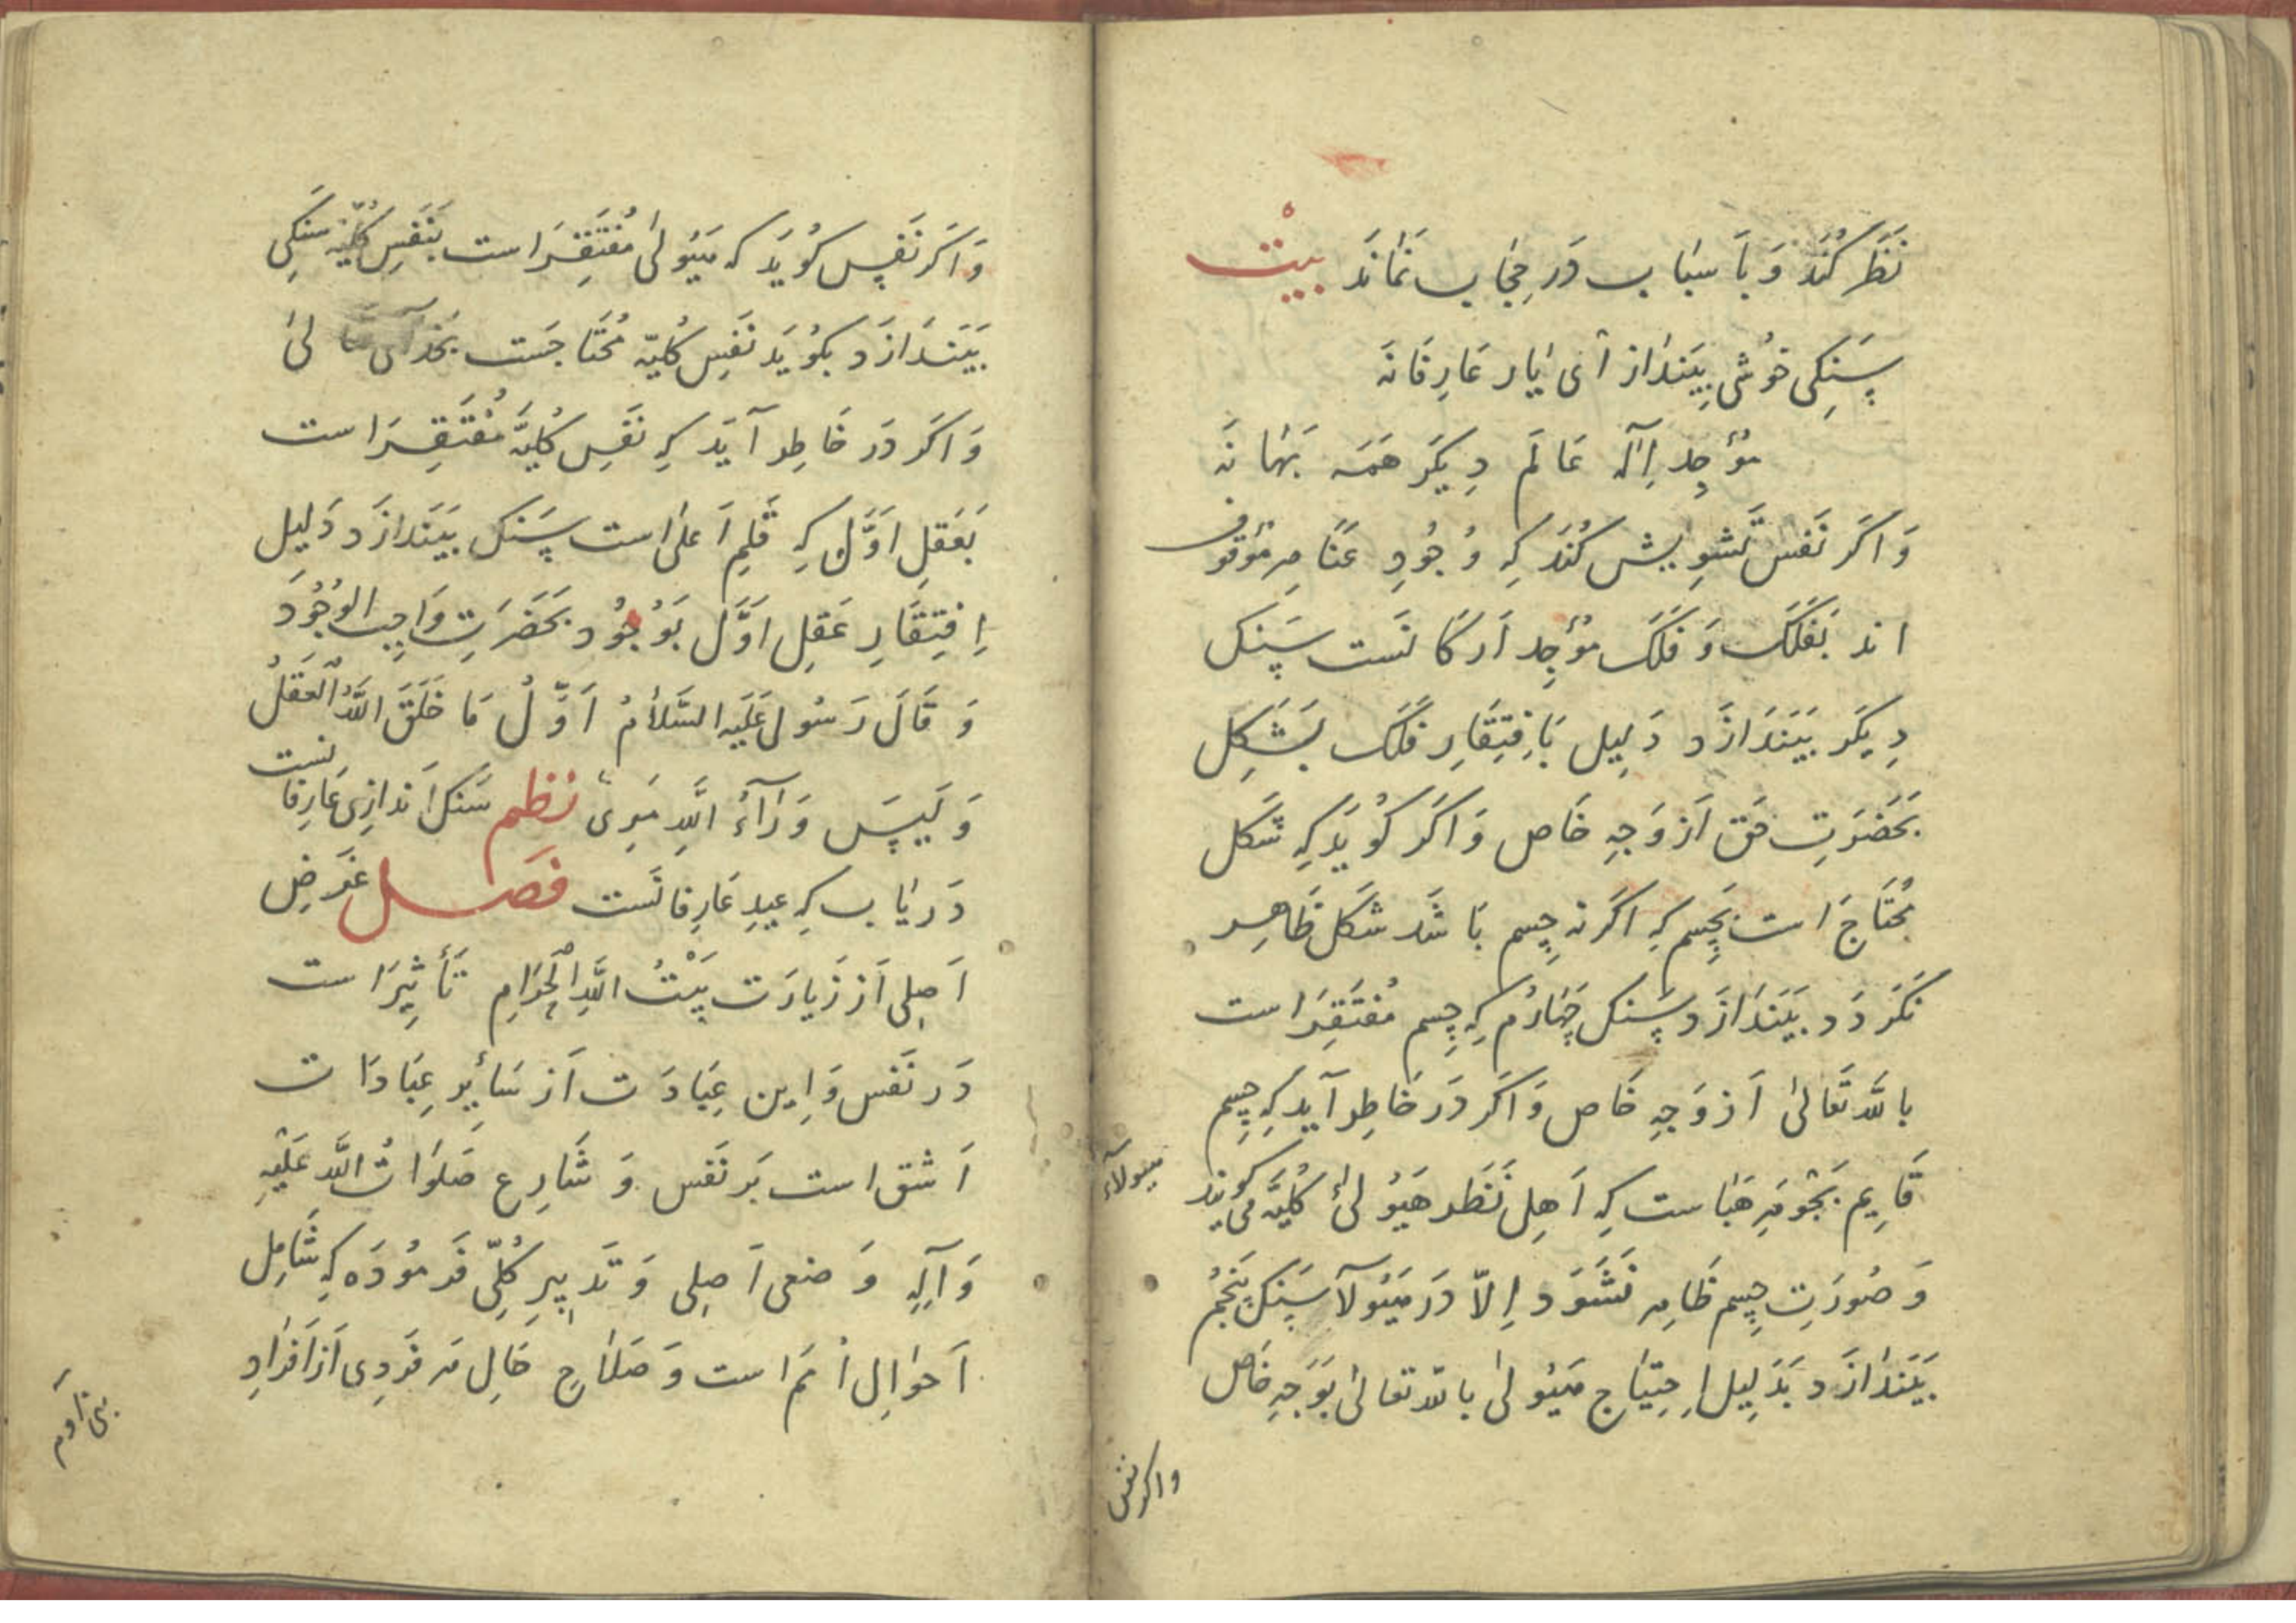 نَظَر كُنَد وَ بَا سبَاب دَر حِجَاب نَمَانَد بيت
سَنِكى خوُشى بِيَندَاز اَى يَار عَارِفَانَه
مؤجِد اِلٓه عَالَم دِيكَر هَمَه بَهَانَه
وَ اكَر نَفس تَشوِيش كُنَد كِه وُجُودِ عَنَاصِر مَوقوُف
اند بَفَلَك وَ فَلَك مؤجِد اَركَا نَست سَنِك
دِيكَر بَيَندَازَد دَلِيل بَافِتِقَارِ فَلَك بَشَكِل
بَحَضرَتِ حَق اَز وَجِه خَاص وَ اكَر كُويَد كِه شَكل
مُحتَاج است بَجِسم كِه اكَر نه جِسم بَاشَد شكل ظَاهِر
نَكَردَد بَيَندَازَد سَنِك چَهَارُم كِه جِسم مُفتَقِرَاست
باللَّه تَعَالىٰ اَز وَجِه خَاص وَ اكَر دَر خَاطِر آيد كِه جِسم
قَايِم بَجَوهَرِ هَبَاست كِه اَهلِ نَظَر هَيوُلىٰ كُلِيَّه مى كويند
هيولاء
وَ صُورَتِ جِسم ظَاهِر نَشَوَد اِلّا دَر هَيُولآ سَنِك پَنجُم
بَيَندَازَد بَدَلِيل اِحتِيَاج هَيُولىٰ باللّه تعالىٰ بَوَجِه خَاص
واكر نفس
وَ اكَر نَفس كُويَد كه هَيُولىٰ مُفتَقِرَاست بَنَفسِ كُلِّيَّه سَنَكى
بَيَندَازَد بكوُيَد نَفسِ كُلِيّه مُحتَاجَست بَخُدَآى تعَالىٰ
وَ اكَر دَر خَاطِر آيَد كِه نَفسِ كُلِيَّه مُفتَقِرَاست
بَعَقلِ اَوَّل كِه قَلمِ اَعلىٰ است سَنك بَيَندَازَد دَلِيل
اِفتِقَارِ عَقلِ اَوَّل بَوُجُود بَحَضرَتِ وَاجِب الوُجُود
وَ قَالَ رَسُول عَلَيه السَّلَامُ اَوَّلُ مَا خَلَقَ اللَّهُ العَقلُ
وَ لَيسَ وَرَآءَ اللَّهِ مَرمىً نظم سَنك اَندازِى عَارِفانست
دَريَاب كِه عيدِ عَارِفانَست فصل غَرَضِ
اَصلِى اَز زيَارَت بَيتُ اللَّهِ الحَرَامِ تَأثِيرَاست
دَر نَفس وَ اِين عِبَادَت اَز سَائِرِ عِبَادَات
اَشق است بَر نَفس وَ شَارِع صَلوَاتُ اللَّه عَلَيهِ
وَ آلِهِ وَضعى اَصلِى وَ تَدبِيرِ كُلِّى فَرموُدَه كِه شَامِلِ
اَحوَالِ اُمَم است وَ صَلَاحِ حَالِ هر فَردِى اَز اَفرَادِ
بنى آدم